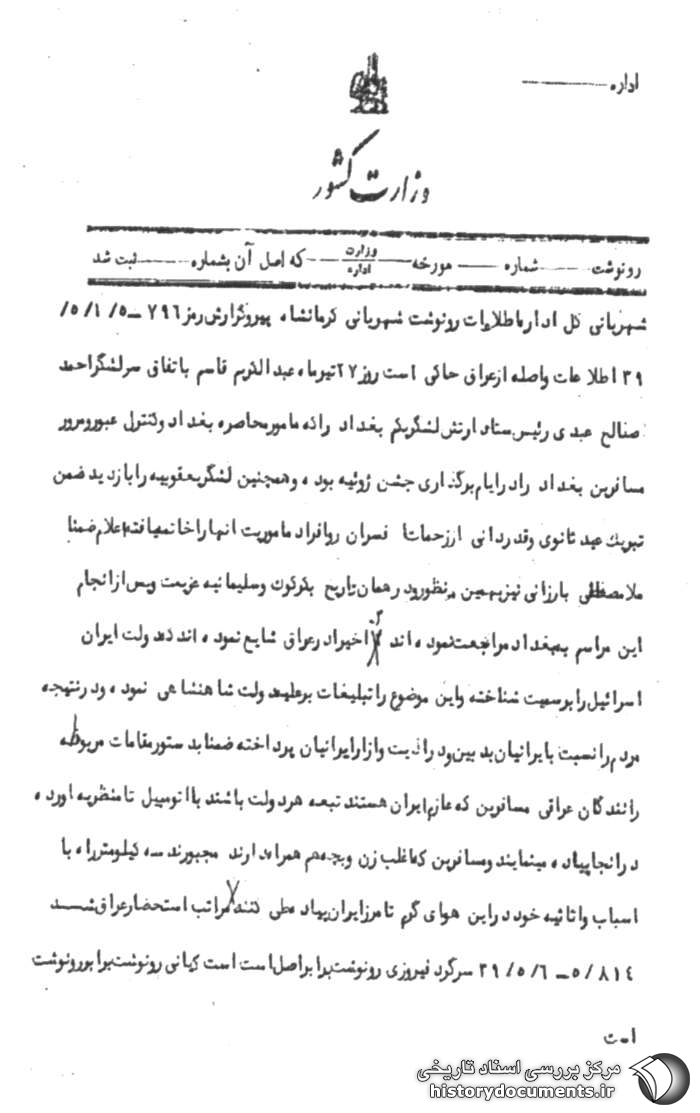 اداره
وزارت کشور
رونوشت شماره مورخه وزارت اداره که اصل آن بشماره ثبت شد
شهربانی کل اداره اطلاعات رونوشت شهربانی کرمانشاه پیرو گزارش رمز ۷۹۶ -۵/ ۱/ ۵/
۳۹ اطلاعات واصله از عراق حاکی است روز ۲۷ تیرماه عبدالکریم قاسم باتفاق سرلشگر احمد
صالح عبدی رئیس ستاد ارتش لشگریکم بغداد را که مامور محاصره بغداد و کنترل عبور و مرور
مسافرین بغداد را در ایام برگذاری جشن ژوئیه بوده و همچنین لشگر یعقوبیه را بازدید ضمن
تبریک عید ثانوی و قدردانی از زحمات افسران و افراد ماموریت انها را خاتمه یافته اعلام ضمنا
ملا مصطفی بارزانی نیز بهمین منظور در همان تاریخ بکرکوک و سلیمانیه عزیمت و پس از انجام
این مراسم ببغداد مراجعت نموده اند اخیرا در عراق شایع نموده اند که دولت ایران
اسرائیل را برسمیت شناخته و این موضوع را تبلیغات بر علیه دولت شاهنشاهی نموده و در نتیجه
مردم را نسبت بایرانیان بدبین و در اذیت و ازار ایرانیان پرداخته ضمنا بدستور مقامات مربوطه
رانندگان عراقی مسافرین که عازم ایران هستند تبعه هر دولت باشند با اتومبیل تا منظریه اورده
در انجا پیاده مینمایند و مسافرین که اغلب زن و بچه هم همراه دارند مجبورند سه کیلومتر راه با
اسباب و اثاثیه خود در این هوای گرم تا مرز ایران پیاده طی کنند مراتب استحضارا عرض شد
۸۱۴ /۵ - ۶/ ۵/ ۳۹ سرگرد فیروزی رونوشت برابر اصل است است کیانی رونوشت برابر رونوشت
است
مرکز بررسی اسناد تاریخی
historydocuments.ir